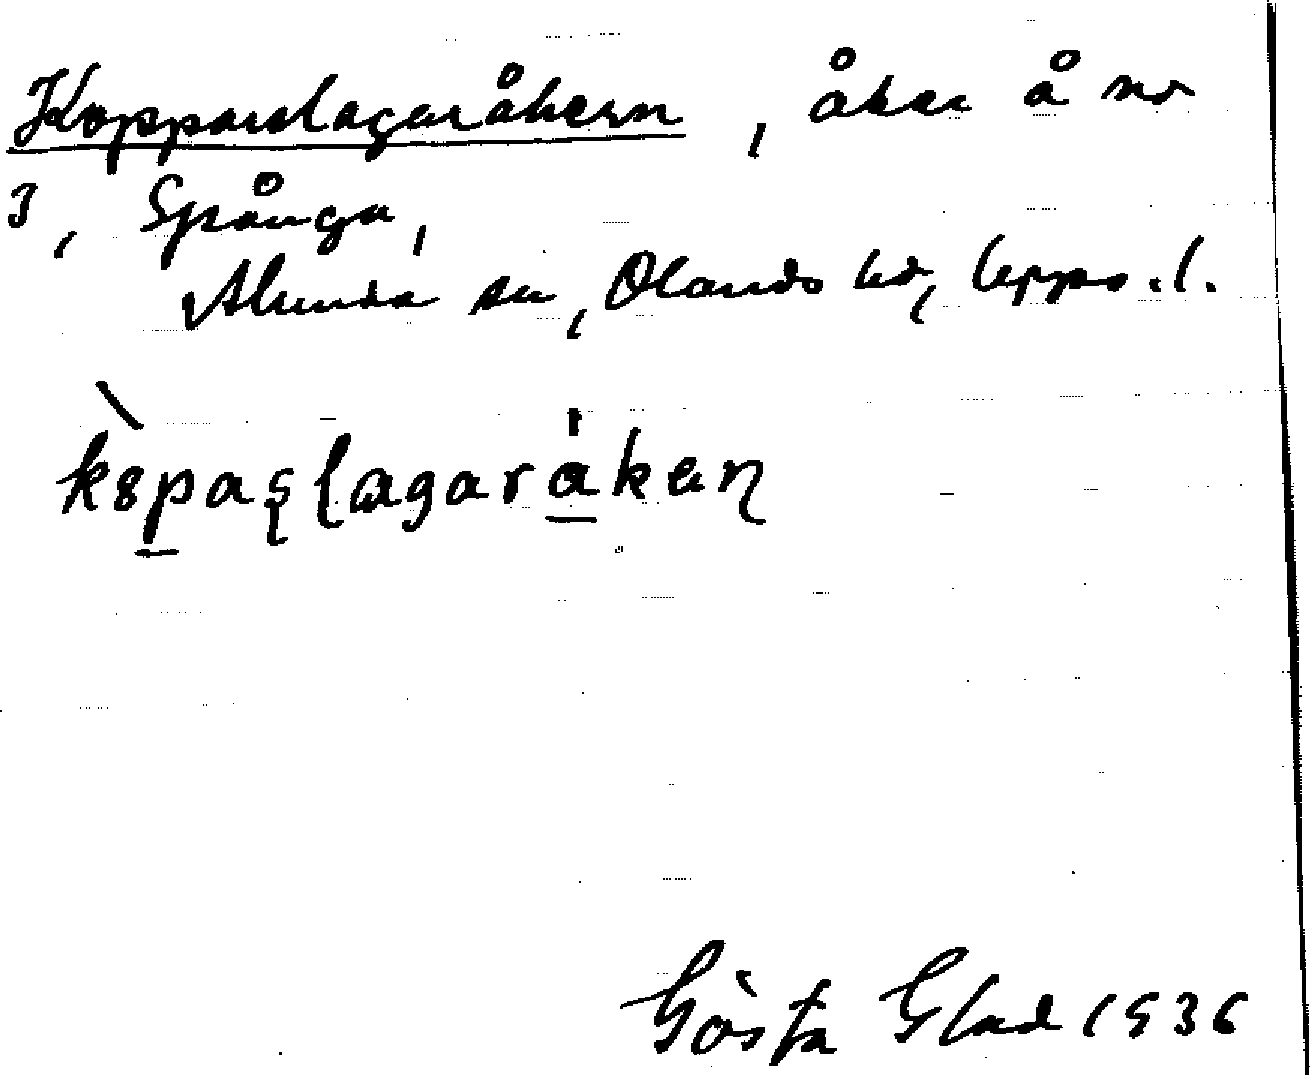 Kopparslagaråkern, åker å nr
3, Spånga,
Alunda sn, Olands hd, Upps. l.
kòpaşlagaråkeɳ
Gösta Glad 1936